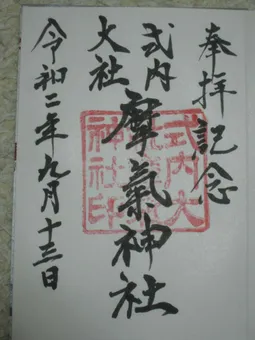 奉拝記念
式内
大社
摩氣神社
令和二年九月十三日
式内大
神社印